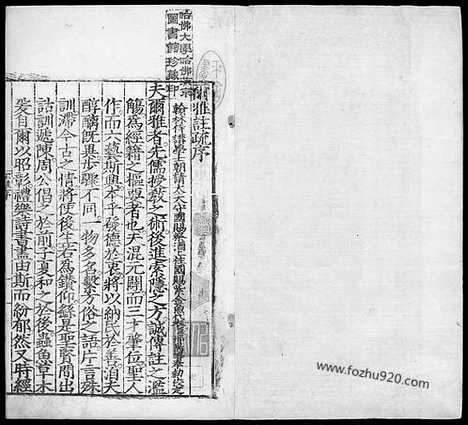 哈佛大學哈佛燕京
圖書館珍藏印
爾雅註疏序
翰林侍講學士朝請大夫守國子祭酒上柱國賜紫金魚袋臣邢昺等奉勅校定
夫爾雅者先儒授教之術後進索隱之方誠傳註之濫
觴為經籍之樞要者也夫混元闢而三才肇位聖人
作而六藝斯興本乎發德於衷將以納民於善洎夫
醇醨既異步驟不同一物多名繫方俗之語片言殊
訓滯今古之情將使後生若為鑽仰繇是聖賢間出
詁訓遞陳周公倡之於前子夏和之於後蟲魚草木
爰自爾以昭彰禮樂詩書盡由斯而紛郁然又時經
www.fozhu920.com